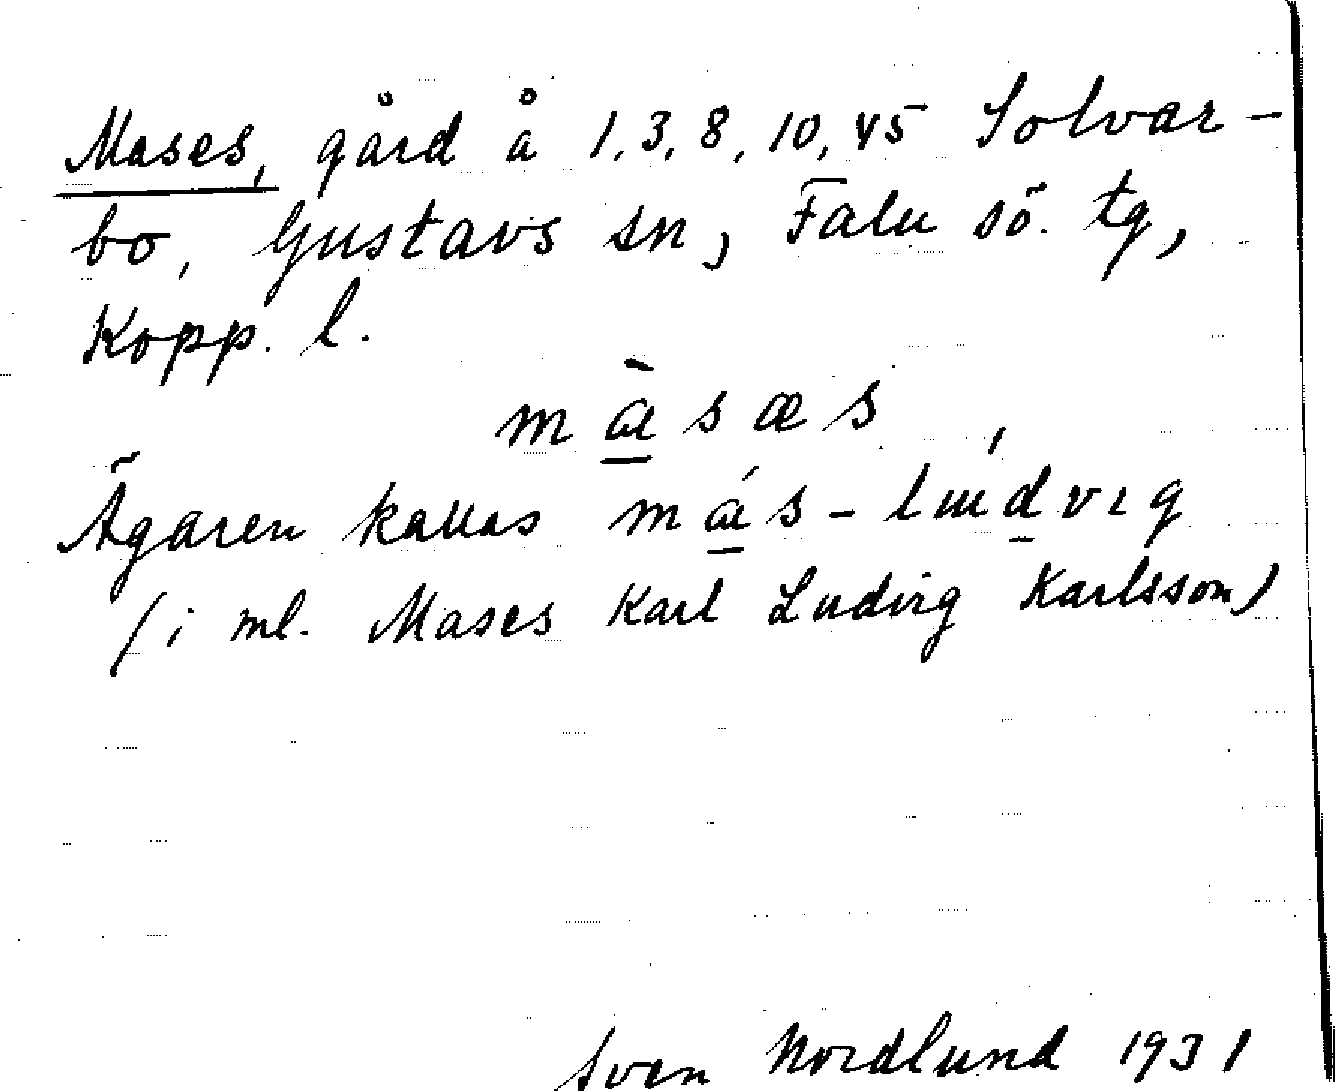 Mases, gård å 1, 3, 8, 10, 45 Solvar-
bo, Gustavs sn, Falu sö. tg,
Kopp. l.
màsæs
Ägaren kallas más-lúdvig
(i ml. Mases Karl Ludvig Karlsson)
Sven Nordlund 1931